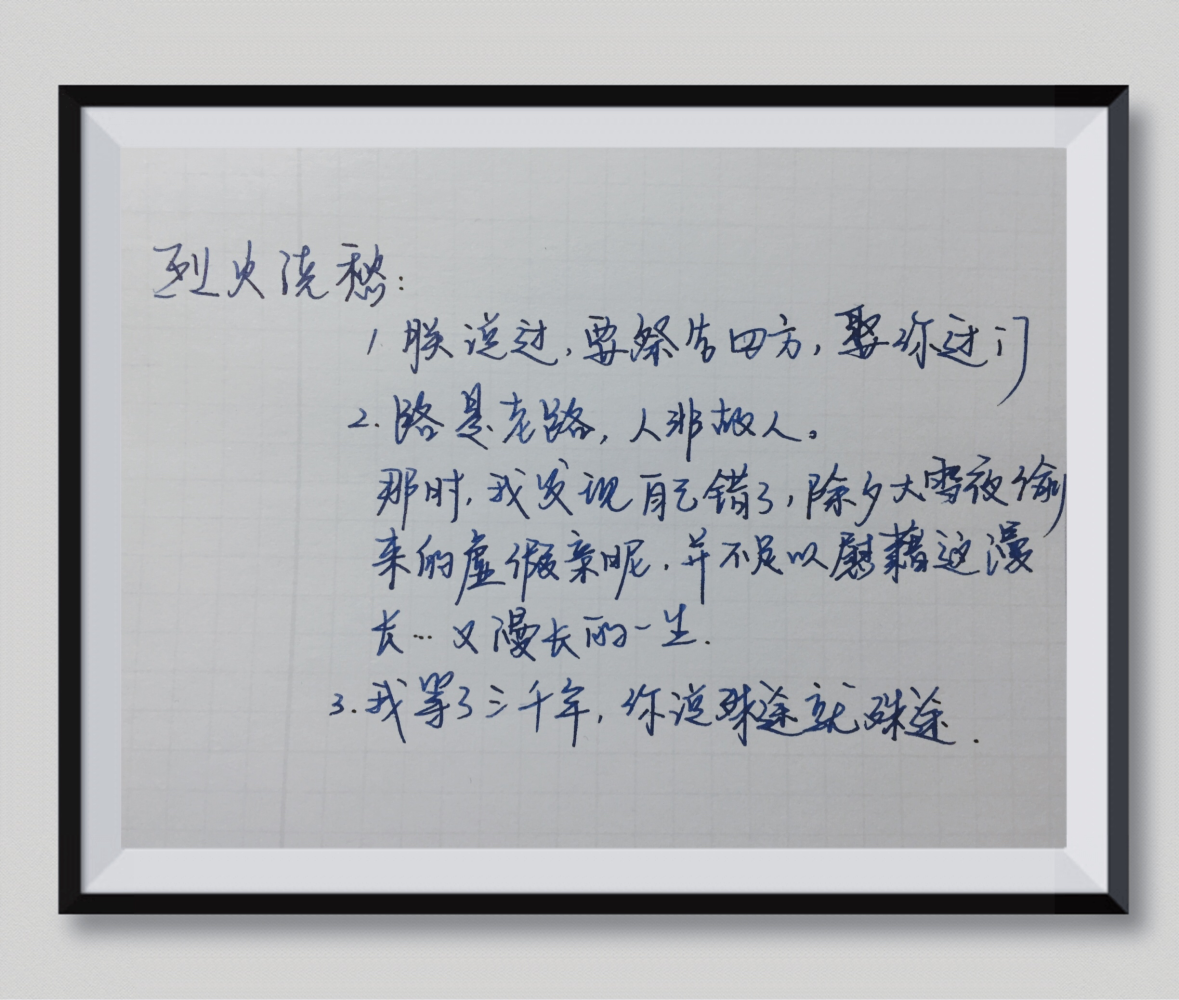 烈火浇愁:
1 朕说过,要祭告四方,娶你过门
2. 路是老路,人非故人。
那时,我发现自己错了,除夕大雪夜偷
来的虚假亲昵.并不足以慰藉这漫
长…又漫长的一生.
3.我等了三千年,你说殊途就殊途.